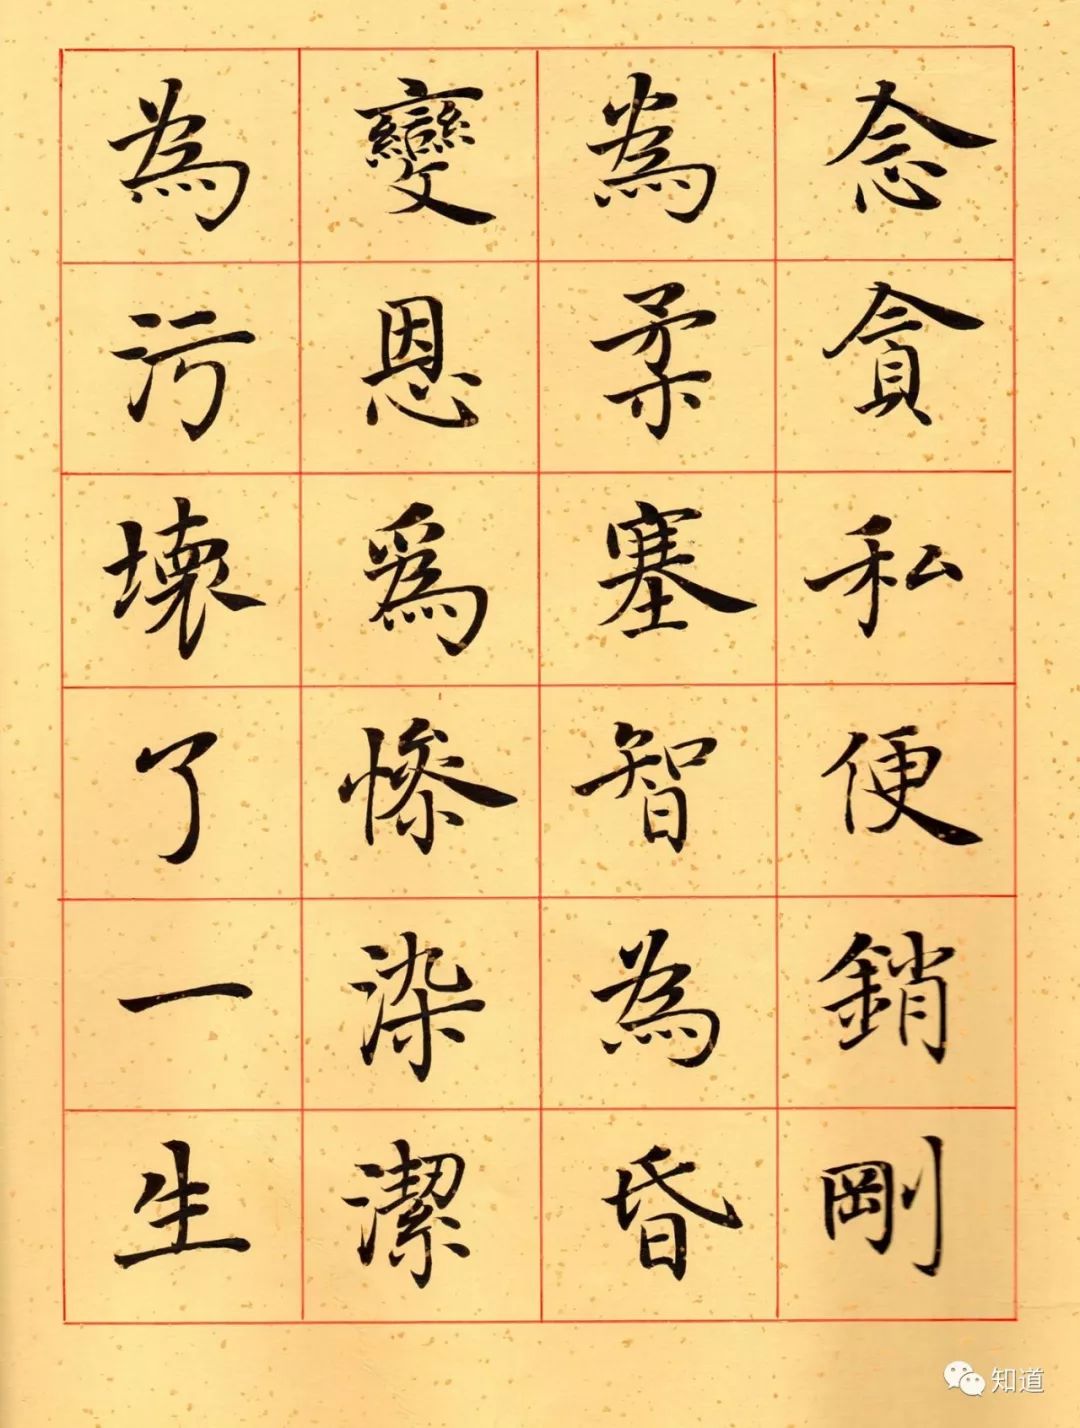 念貪私便銷剛
為柔塞智為昏
變恩爲慘染潔
為污壞了一生
知道